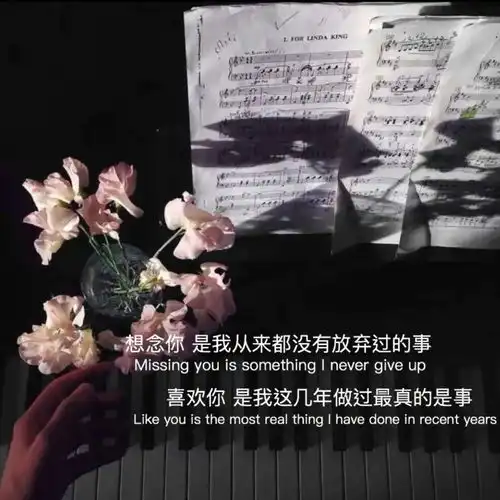 1. FOR LINDA KING
想念你 是我从来都没有放弃过的事
Missing you is something I never give up
喜欢你 是我这几年做过最真的是事
Like you is the most real thing I have done in recent years